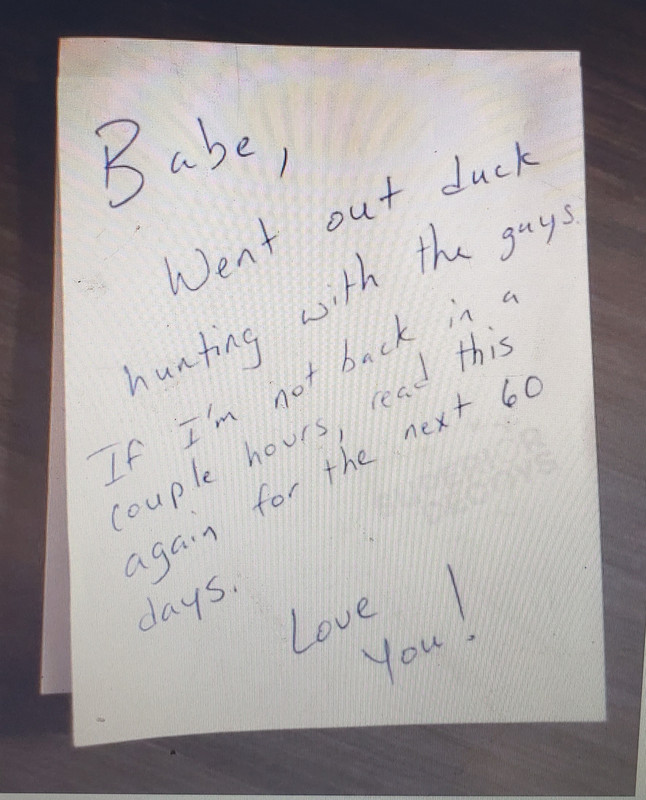 Babe,
Went out duck
hunting with the guys.
If I'm not back in a
couple hours, read this
again for the next 60
days.
Love
You!
SUPERIOR
DECOYS